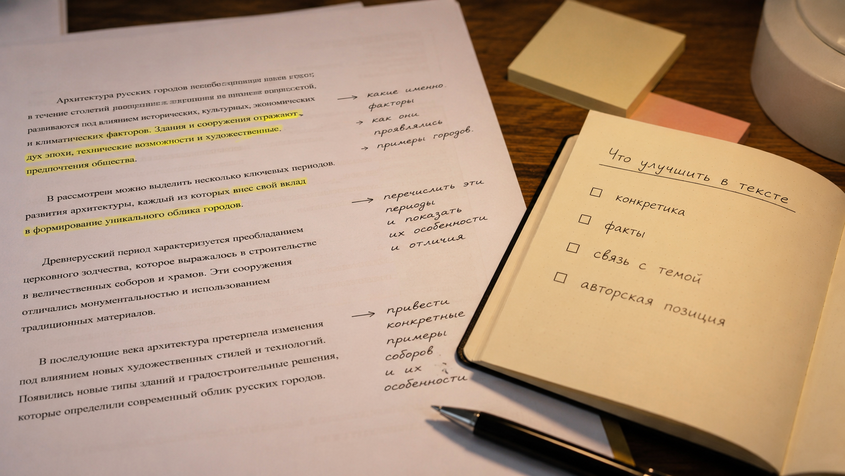 Архитектура русских городов
в течение столетий
развиваются под влиянием исторических, культурных, экономических
и климатических факторов. Здания и сооружения отражают
дух эпохи, технические возможности и художественные.
предпочтения общества.
В рассмотреи можно выделить несколько ключевых периодов.
развития архитектуры, каждый из которых внес свой вклад
в формирование уникального облика городов.
Древнерусский период характеризуется преобладанием
церковного зодчества, которое выражалось в строительстве
в величественных соборов и храмов. Эти сооружения
отличались монументальностью и использованием
традиционных материалов.
В последующие века архитектура претерпела изменения
под влиянием новых художественных стилей и технологий.
Появились новые типы зданий и градостроительные решения,
которые определили современный облик русских городов.
→ какие именно
факторы
→ как они
проявлялись
→ примеры городов.
→ перечислить эти
периоды
и показать
их особенности
и отличия
→ привести
конкретные
примеры
соборов
и их
особенности
Что улучшить в тексте
☐ конкретика
☐ факты
☐ связь с темой
☐ авторская позиция